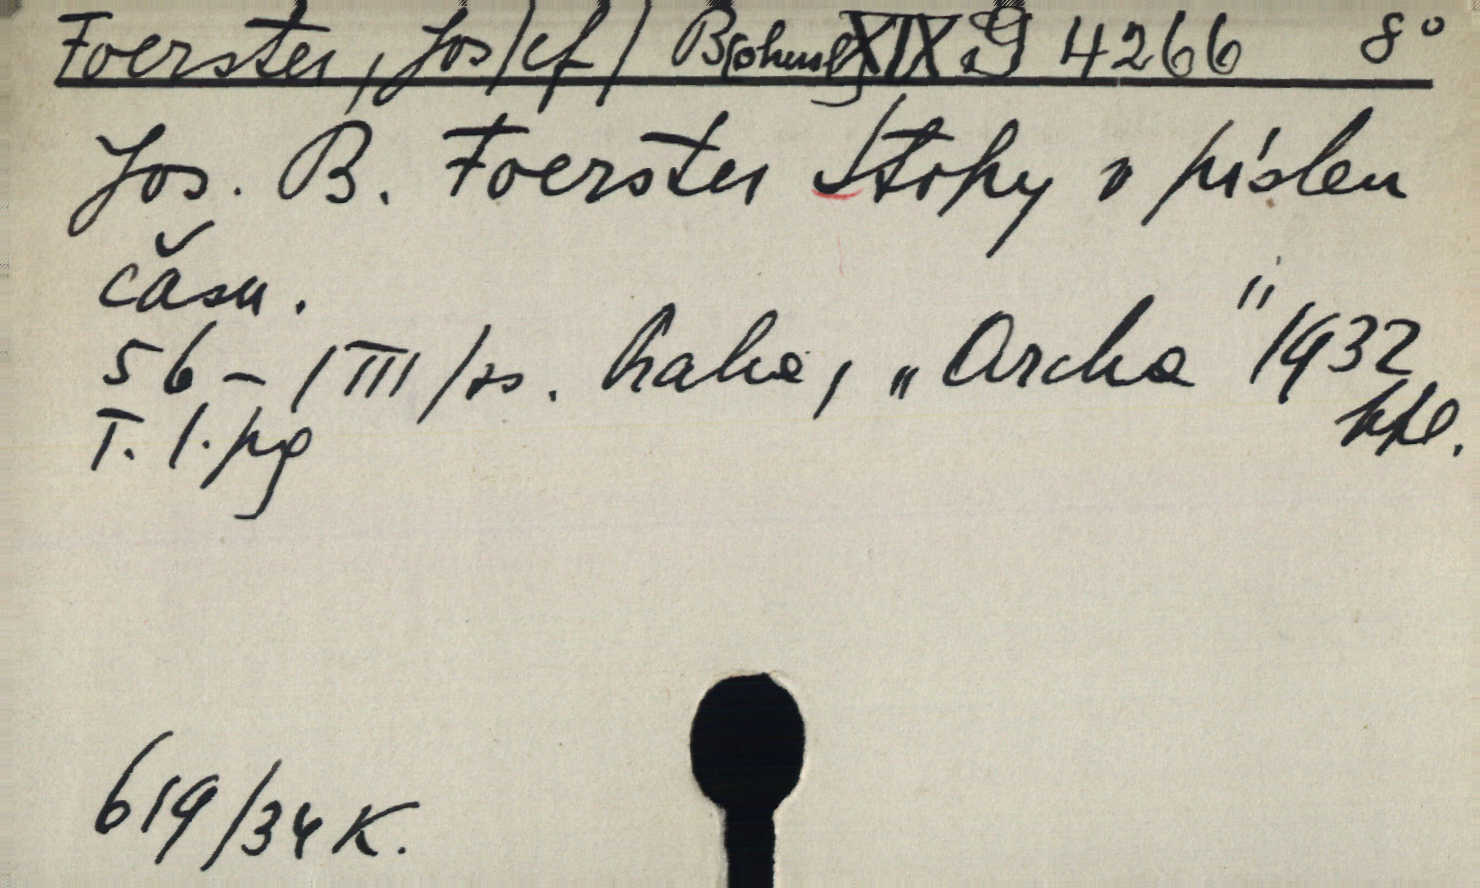 Foerster, Jos/ef/ B[ohusl] XIX G 4266 8°
Jos. B. Foerster Stopy v písku
času.
56 - /III/ ss. Praha, „Archa" 1932
T. 1. pg kpl.
619/34 K.